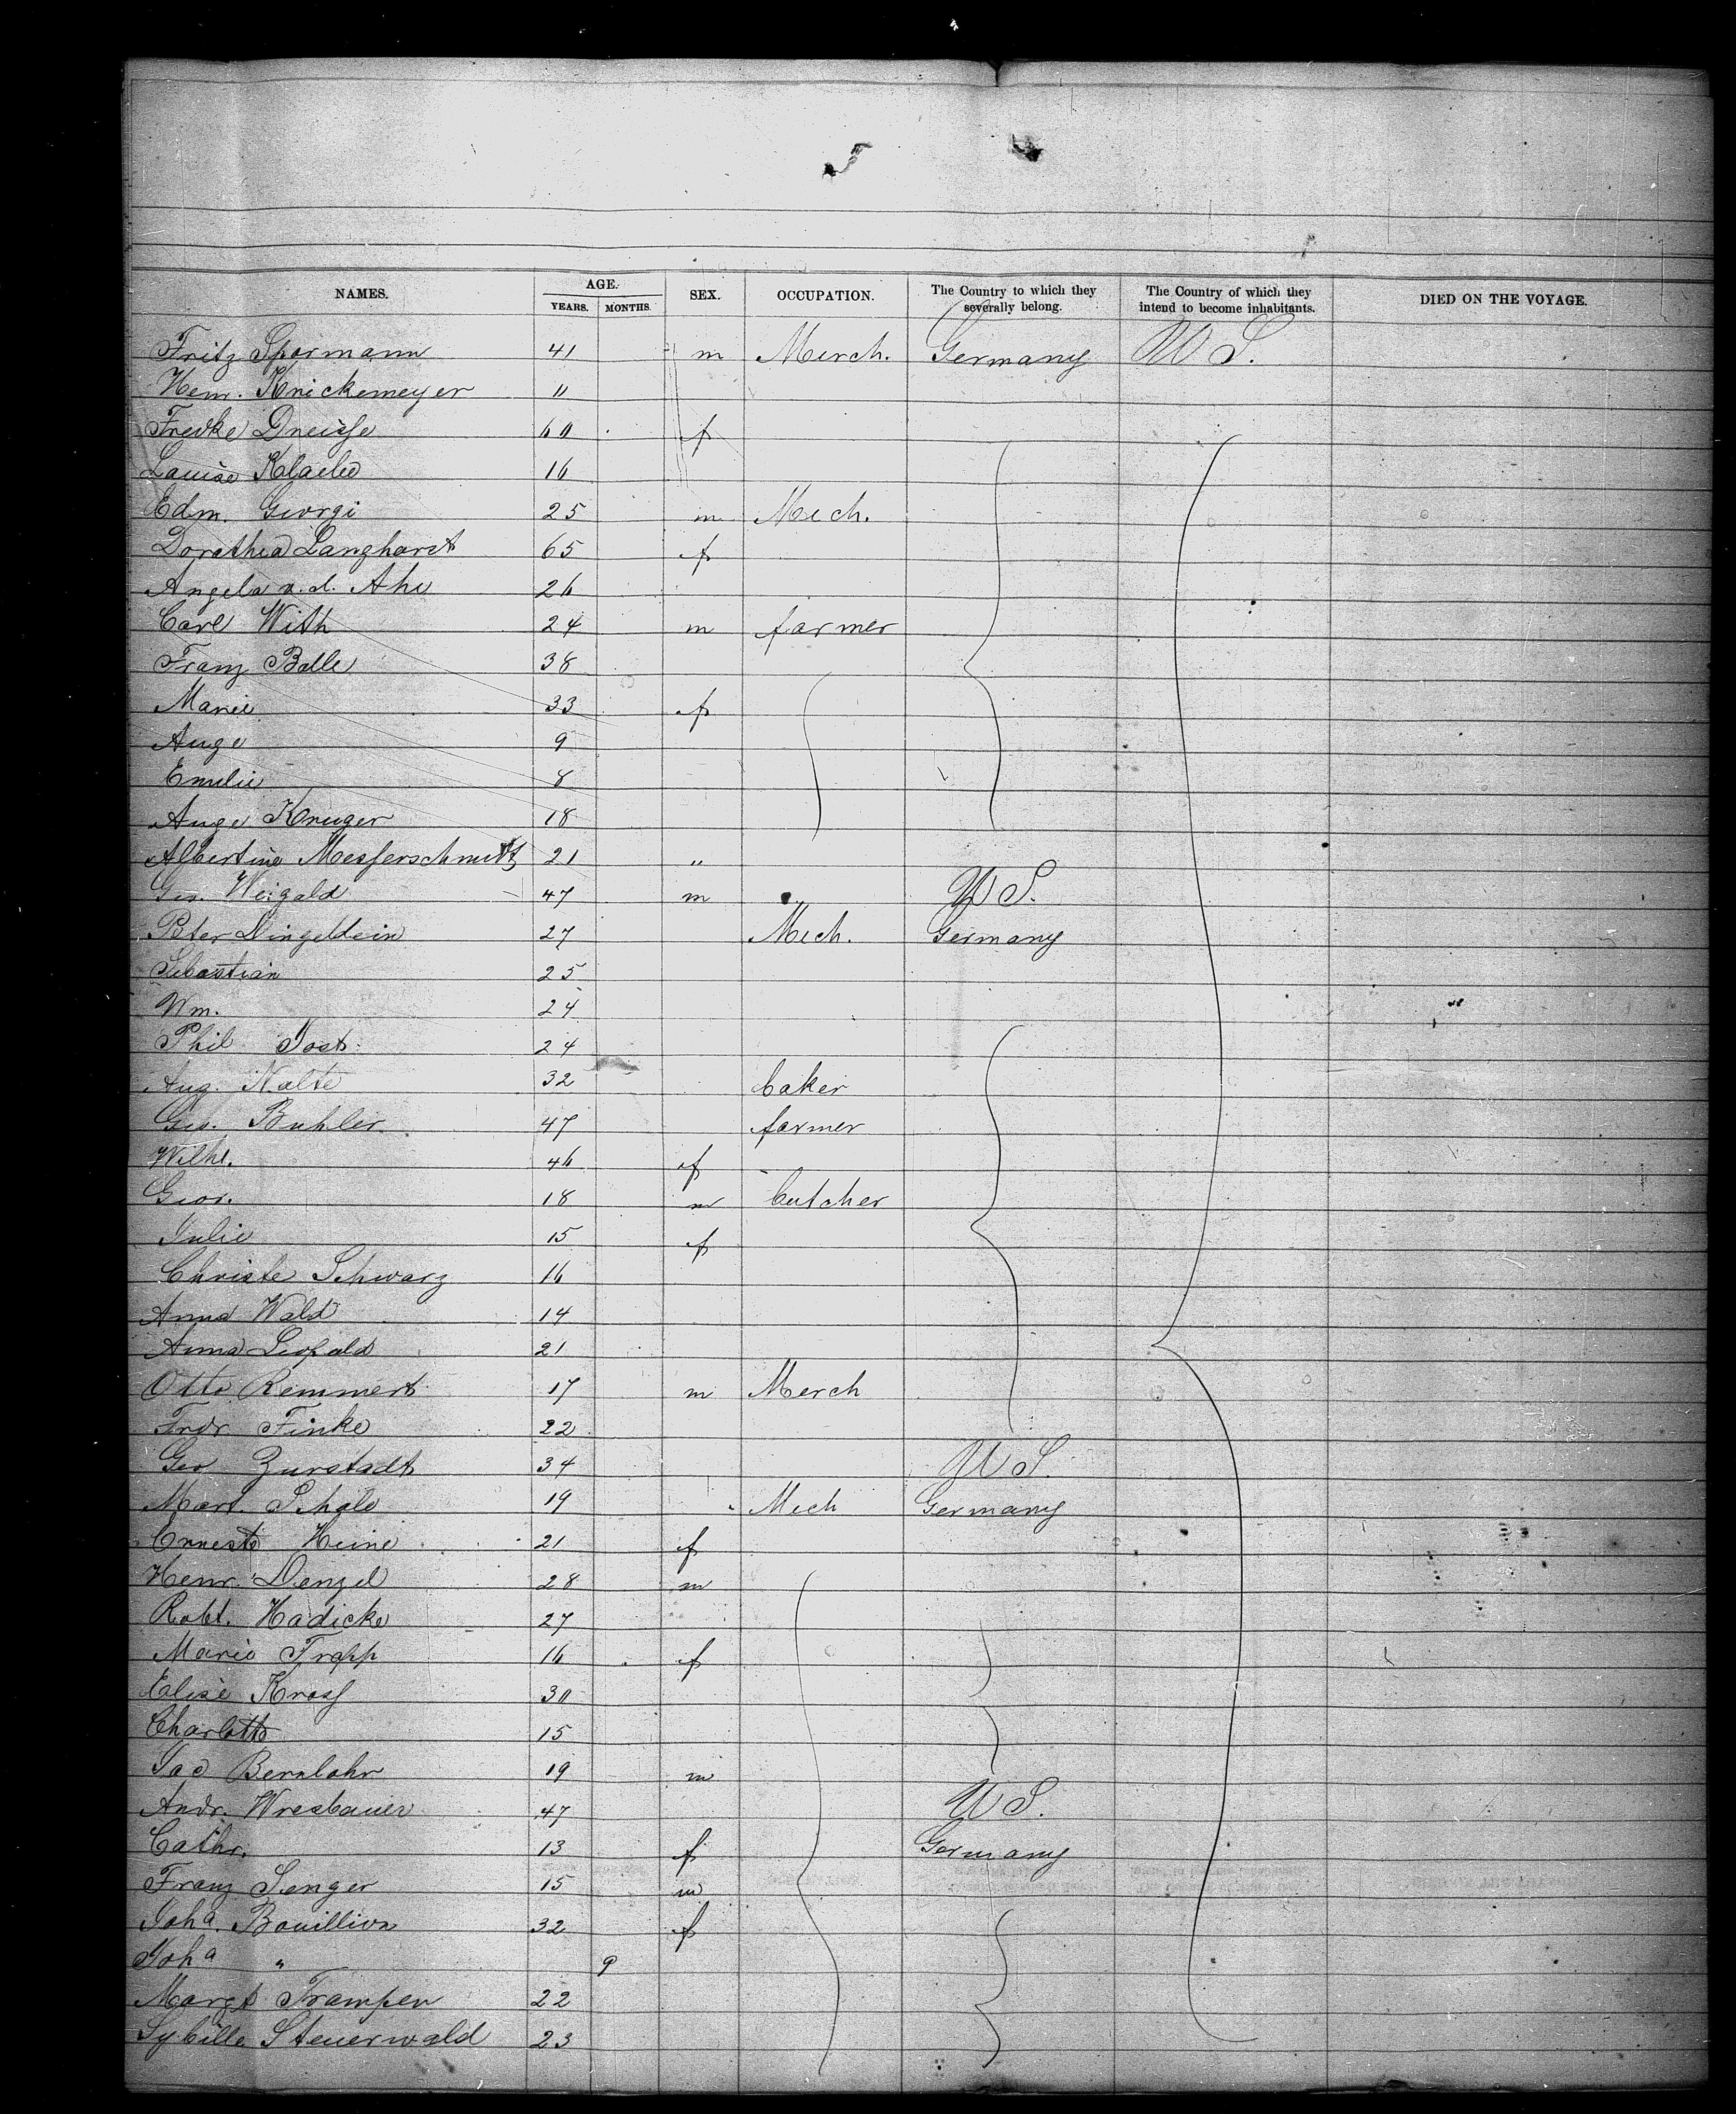 NAMES. AGE. YEARS. MONTHS. SEX. OCCUPATION. The Country to which they severally belong. The Country of which they intend to become inhabitants. DIED ON THE VOYAGE.
Fritz Spormann 41 m Merch. Germany U S.
Henr. Knickemeyer 11
Fredke Dreisse 60 f
Louise 16
Edm. Georgi 25 m Mech.
Dorothea Langhorst 65 f
Angela v. d. Ahe 26
Carl With 24 m farmer
Franz Balle 38
Marie 33 f
Auge 9
Emilie 8
Auge Kruger 18
Albertine Messerschmidt 21 "
Geo. Weigald 47 m " U S.
Peter Dingeldein 27 Mech. Germany
Sebastian 25
Wm. 24
Phil Jost 24
Aug. Nolte 32 baker
Geo. Buhler 47 farmer
Wilhe. 46 f
Geor. 18 m butcher
Julie 15 f
Christe Schwarz 16
Anna Wald 14
Anna Leopold 21
Otto Remmert 17 m Merch
Frdr Finke 22
Geo Zurstadt 34 U S.
Mart. Schale 19 Mech Germany
Erneste Heine 21 f
Henr. Denzel 28 m
Robt. Hadicke 27
Marie Trapp 16 f
Elise Kross 30
Charlotte 15
Jac Bernlohr 19 m
Andr. Wresbauer 47 U S.
Cathr. 13 f Germany
Franz Senger 15 m
Joha. Bouillion 32 f
Joha " 9
Margt Trampen 22
Sybille Steuerwald 23